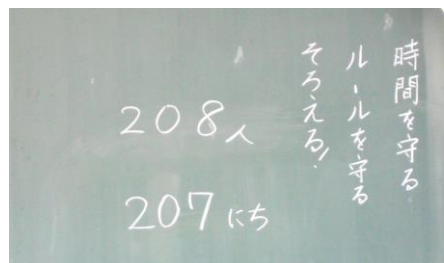 時間を守る
ルールを守る
そろえる!
208人
207にち